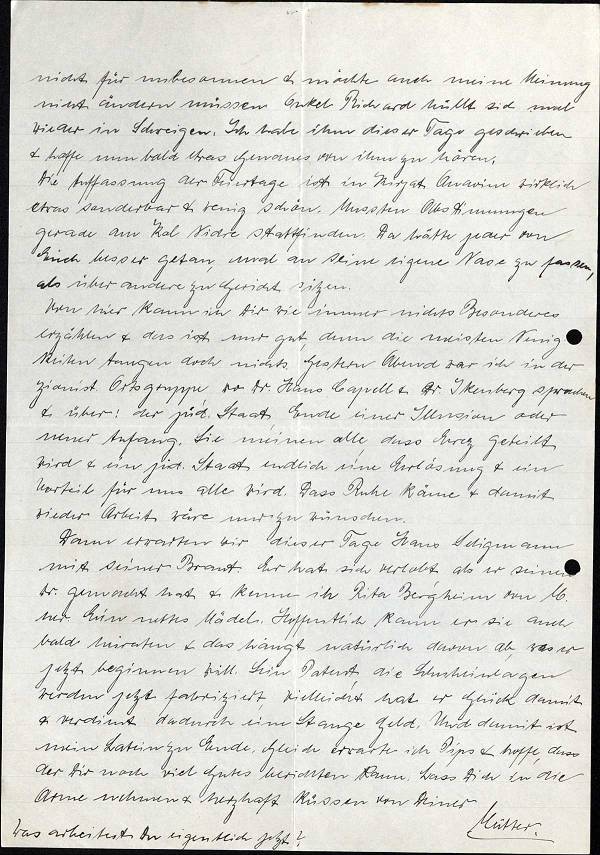 nicht für unbesonnen & möchte auch meine Meinung
nicht ändern müssen. Onkel Richard hüllt sich mal
wieder in Schweigen. Ich habe ihm dieser Tage geschrieben
& hoffe nun bald etwas Genaues von ihm zu hören.
Die Auffassung der Feiertage ist in Kirjat Anavim wirklich
etwas sonderbar & wenig schön. Mussten Abstimmungen
gerade am Kol Nidre stattfinden. Da hätte jeder von
Euch besser getan, mal an seine eigene Nase zu fassen,
als über andere zu Gericht sitzen.
Von hier kann ich Dir wie immer nichts Besonderes
erzählen & das ist nur gut, denn die meisten Neuig
keiten taugen doch nichts. Gestern Abend war ich in der
zionist. Ortsgruppe wo Dr. Hans Capell & Dr. Ikenberg sprachen
& über: der jüd. Staat Ende einer Illusion oder
neuer Anfang. Sie meinen alle dass Erez geteilt
wird & ein jüd. Staat endlich eine Erlösung & ein
Vorteil für uns alle wird. Dass Ruhe käme & damit
wieder Arbeit wäre nur zu wünschen.
Dann erwarten wir dieser Tage Hans Seligmann
mit seiner Braut. Er hat sich verlobt als er seinen
Dr. gemacht hat & kenne ich Rita Bergheim von M.
her. Ein nettes Mädel. Hoffentlich kann er sie auch
bald heiraten & das hängt natürlich davon ab, was er
jetzt beginnen will. Sein Patent, die Schuheinlagen
werden jetzt fabriziert, vielleicht hat er Glück damit
& verdient dadurch eine Stange Geld. Und damit ist
mein Latein zu Ende. Gleich erwarte ich Pips & hoffe, dass
der Dir noch viel Gutes berichten kann. Lass Dich in die
Arme nehmen & herzhaft küssen von Deiner
Mutter.
Was arbeitest Du eigentlich jetzt?